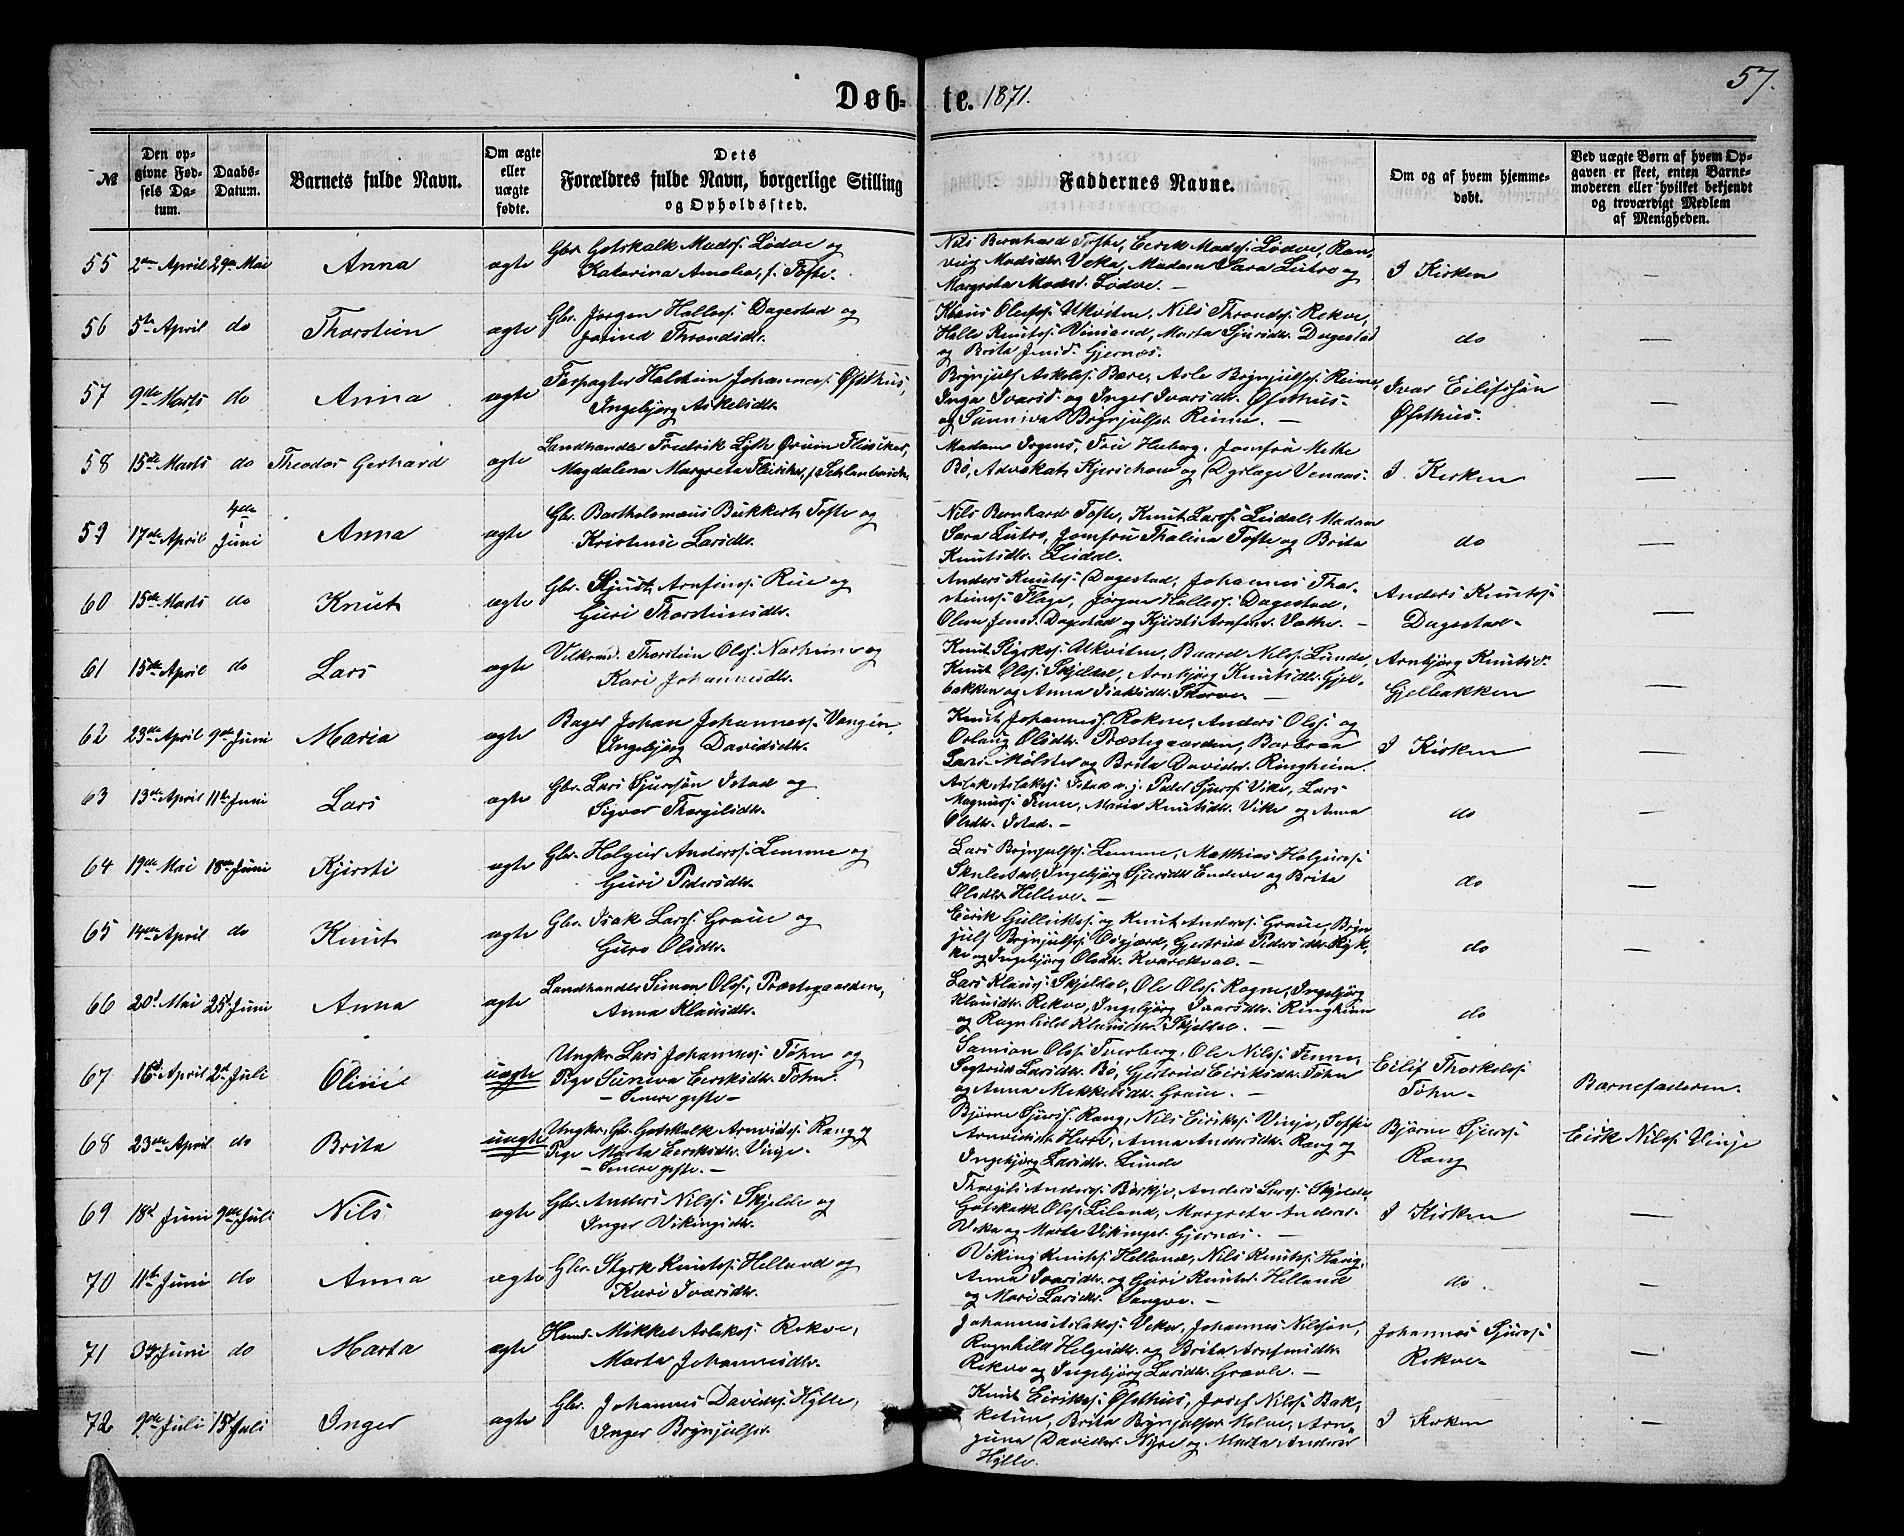 57.
Døb- te. 1871.
№
Den opgivne Fødsels Datum.
Daabs-Datum.
Barnets fulde Navn.
Om ægte eller uægte fødte.
Dets Forældres fulde Navn, borgerlige Stilling og Opholdssted.
Faddernes Navne.
Om og af hvem hjemmedøbt.
Ved uægte Børn af hvem Opgaven er skeet, enten Barnemoderen eller hvilket bekjendt og troværdigt Medlem af Menigheden.
55 2den April 29de Mai Anna ægte Gbr. Gotskalk Madss. Lødve og
Katarina Amalia, f. Tofte.
Nils Bernhard Tofte, Eirik Madss. Lødve, Ran-
veig Madsdtr. Veka, Madam Sara Lutro og
Margreta Madsd. Lødve. —
I Kirken —
56 5te April do Thorstein ægte Gbr. Jørgen Halless. Dagestad og
Jorind Throndsdtr.
Olafss. Ukviten, Nils Thronds. Rekve,
Halle Knutss. Vinsand, Marta Sjursdtr. Dagestad
og Brita Jensd. Gjernes.
do —
57 9de Marts do Anna ægte Forpagter Halstein Johanness. Øfsthus,
Ingebjørg Askelsdtr.
Brynjulf Askelss. Bære, Asle Brynjulfss. Reime,
Inga Ivarsd. og Inger Ivarsdtr. Øfsthus-
og Sunniva Brynjulfsd. Reime. —
Ivar Eilifssøn
Øfsthus. —
58 15de Marts do Theodor Gerhard ægte Landhandler Fredrik Lyth Ørum Fleischer,
Magdalena Margreta Fleischer, f.
Madam Irgens, Frue Heiberg, Jomfru Mette
Bø, Advokat Kjerschow og Dyrlæge Venaas.
I Kirken —
59 17de April 4de Juni Anna ægte Gbr. Bartholomæus Bukkert Tofte og
Kristense Larsdtr.
Nils Bernhard Tofte, Knut Larss. Leidal, Madam
Sara Lutro, Jomfru Thalina Tofte og Brita
Knutsdtr. Leidal.
do —
60 15de Marts do Knut ægte Gbr. Sjurt Arnfinss. Rue og
Guri Thorsteinsdtr.
Anders Knutss. Dagestad, Johannes Thor-
steinss. Flage, Jørgen Halless. Dagestad,
Olena Jensd. Dagestad og Kjersti Arnfinsd. Vathe. —
Anders Knutss.
Dagestad. —
61 15de April do Lars ægte Thorstein Olss. Norheim og
Kari Johannesdtr.
Knut Styrkss. Ukviten, Baard Nilss. Lunde,
Knut Olss. Skjeldal, Arnbjørg Knutsdtr. Gjel-
bakken og Anna Isaksdtr. —
Arnbjørg Knutsd.
Gjelbakken —
62 23de April 9de Juni Maria ægte Bager Johan Johanness. Vangen,
Ingebjørg Davidsdtr.
Knut Johanness. Rokne, Anders Olss. og
Orlaug Olsdtr. Præstegaarden, Barbraa
Larsd. Mølster og Brita Davidsd. Ringheim.
I Kirken —
63 13de April 11te Juni Lars ægte Gbr. Lars Sjurssøn Istad og
Sigvor Thorgilsdtr.
Aslak Aslakss. Istad n. j. Peder Sjurss. Vike, Lars
Magnuss. Finne, Maria Knutsdtr. Vike og Anna
Olsdtr. Istad. —
do —
64 19de Mai 18de Juni Kjersti ægte Gbr. Holgeir Anderss. Lemme og
Guri Pedersdtr.
Lars Brynjulfss. Lemme, Matthias Holgeirss.
Skulestad, Ingebjørg Sjursdtr. Endeve og Brita
Olsdtr. Helleve. —
do —
65 14de April do Knut ægte Gbr. Isak Larss. Graue og
Guro Olsdtr.
Eirik Gulleikss. og Knut Anderss. Graue, Bryn-
julf Brynjulfss. Gjertrud Pedersdtr. Ryk-
ke og Ingebjørg Olsdtr. Kvarekval. —
do —
66 20d. Mai 25d. Juni Anna ægte Landhandler Simon Olss., Præstegaarden,
Anna Klausdtr.
Lars Klauss. Skjeldal, Ole Olss. Rogne, Ingebjørg
Klausdtr. Rekve, Ingebjørg Ivarsdtr. Ringheim
og Ragnhild Klausdtr. Skjeldal. —
do —
67 16d. April 2d. Juli Oline uægte Ungkr. Lars Johanness. Tøhn og
Pige Suneva Eiriksdtr. Tøhn.
— Senere gifte —
Samson Olss. Tverberg, Ole Nilss. Finne,
Sigtrud Larsdtr. Bø, Gjertrud Eiriksdtr. Tøhn
og Anna Mikkelsdtr. Graue. —
Eilif Thorkelss.
Tøhn. Barnefaderen.
68 23de April do Brita uægte Ungkr. Gbr. Gotskalk Arnvidss. Rong og
Pige Marta Eiriksdtr. Vinje.
— Senere gifte. —
Bjørne Sjurss. Rong, Nils Eirikss. Vinje, Soffie
Arnvidsdtr. Anna Andersdtr. Rong og
Ingebjørg Larsdtr. Lunde
Bjørne Sjurss.
Rong Eirik Nilss. Vinje
69 18d. Juni 9de Juli Nils ægte Gbr. Anders Nilss. Skjelde og
Inger Vikingsdtr.
Thorgils Anderss. Børkje, Anders Larss. Skjelde,
Gotskalk Olss. Leiland, Margreta Andersd.
Veka og Marta Vikingsd. Gjernes. —
I Kirken —
70 11te Juni do Anna ægte Gbr. Styrk Knutss. Helland og
Kari Ivarsdtr.
Viking Knutss. Helland, Nils Knutss. Haug,
Anna Ivarsdtr. og Guri Knutsd. Helland
og Mari Larsdtr. Sangve. —
do. —
71 3die Juni do Marta ægte Huusm. Mikkel Aslakss. Rekve,
Marta Johannesdtr.
Johannes Aslakss. Veka, Johannes Nilssøn,
Ragnhild Helgesdtr. og Brita Arnfinsdtr.
Rekve og Ingebjørg Larsdtr. Graue. —
Johannes Sjurss.
Rekve —
72 9de Juli 15d Juli Inger ægte Gbr. Johannes Davidss. Hylle,
Inger Brynjulfsd.
Knut Eirikss. Øfsthus, Josef Nilss. Bak-
ketun, Brita Brynjulfsd. Arn-
guna Davidsd. Nyre og Marta Andersd.
Hylle.
I Kirken —